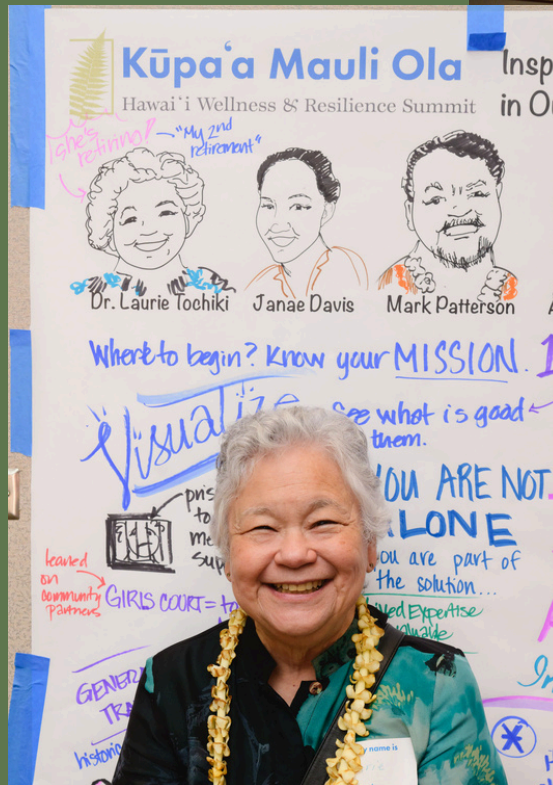 Kūpaʻa Mauli Ola
Hawaiʻi Wellness & Resilience Summit
Insp
in O
she's retiring!
"My 2nd
retirement"
Dr. Laurie Tochiki
Janae Davis
Mark Patterson
A
Where to begin? Know your MISSION.
Visualize
See what is good
them.
YOU ARE NOT
ALONE
you are part of
the solution...
pris
to
me
sup
leaned
on
community
partners
GIRLS COURT = to
Lived Expertise
GENER
TRA
historic
In
y name is
H